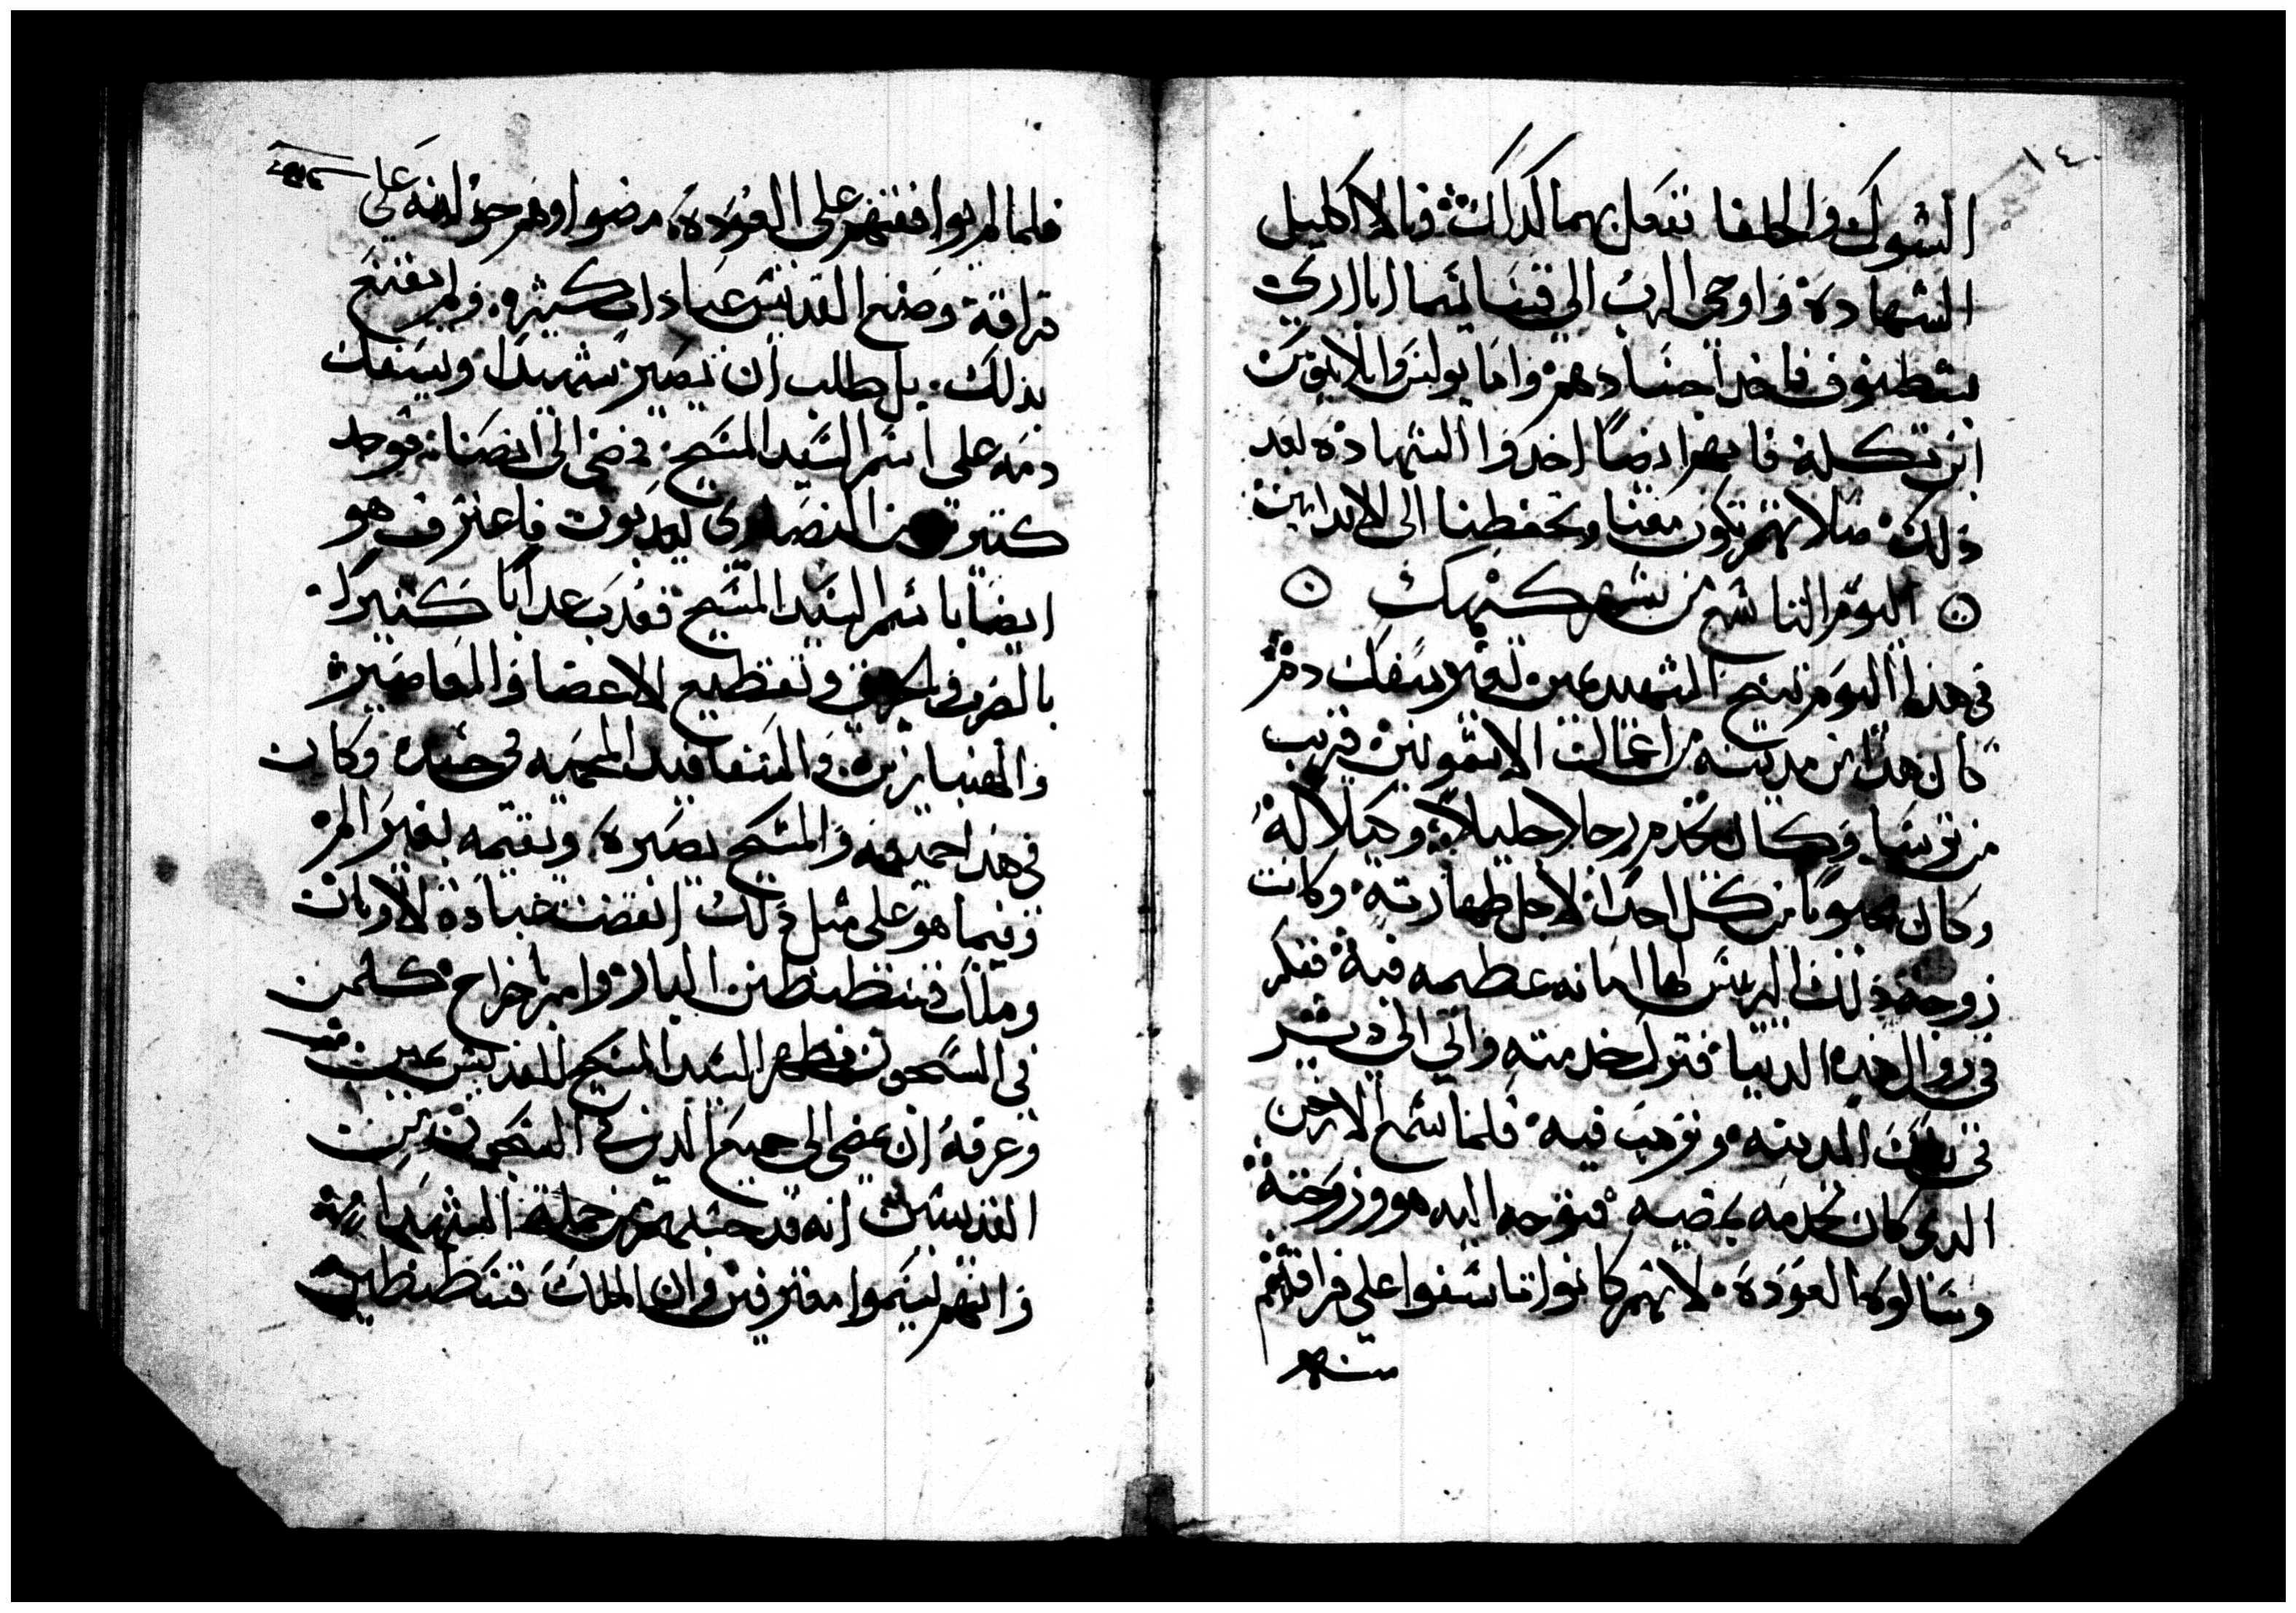 ١٤٠
الشوك والحلفا نفعل بهما كذلك ونالا اكليل
الشهاده واوحى الرب الى قيسا ئسما ابا اري
بشطنوف فاخد اجسادهم واما يولنوا بلا بوين
ابن تكله فانهم ايضا اخدوا الشهاده بعد
ذلك صلاتهم تكون معنا وتحفظنا الى الابد امين
اليوم التاسع من شهر كيهك
فى هذا اليوم تنيح الشهيد بمين بغير سفك دم
كان هذا من مدينه من اعمال الاشمونين قريب
من برسا وكان يخدم رجلا جليلا وكيلا له
وكان محبوبا من كل احدا لاجل طهارته وكانت
زوجة ذلك الريس لها امانه عظيمه فيه ففكر
فى زوال هذه الدنيا فترك خدمته واتى الى دير
فى تلك المدينه وترهب فيه فلما سمع الارخن
الدى كان يخدمه بمضيه فتوجه اليه هو وزوجته
وسالوه العوده لانهم كانوا تاسفوا على فراقهم
منه
فلما لم يوافقهم على العوده مضوا وهم حزانه على
فراقه وصنع القديس عبادات كثيره ولم يقنع
بذلك بل طلب ان يصير شهيدا ويسفك
دمه على اسم السيد المسيح فمضى الى انصنا فوجد
كتير من النصارى يعدبون فاعترف هو
ايضا باسم السيد المسيح فعُدب عدابا كثيرا
بالضرب والحريق وتقطيع الاعضا والمعاصير
والهنبازين والسفافيد المحميه فى جسده وكان
فى هدا جميعه والمسيح يصبره ويقيمه بغير الم
وفيما هو على مثل ذلك انقضت عبادة الاوتان
وملك قسطنطين البار وامر باخراج كلمن
فى السجون فظهر السيد المسيح للقديس بمين
وعرفه ان يمضى الى جميع الدين فى السجون من
القديسين انه قد حسبهم من جملة الشهدا
وانهم ليسموا معترفين وان الملك قسطنطين